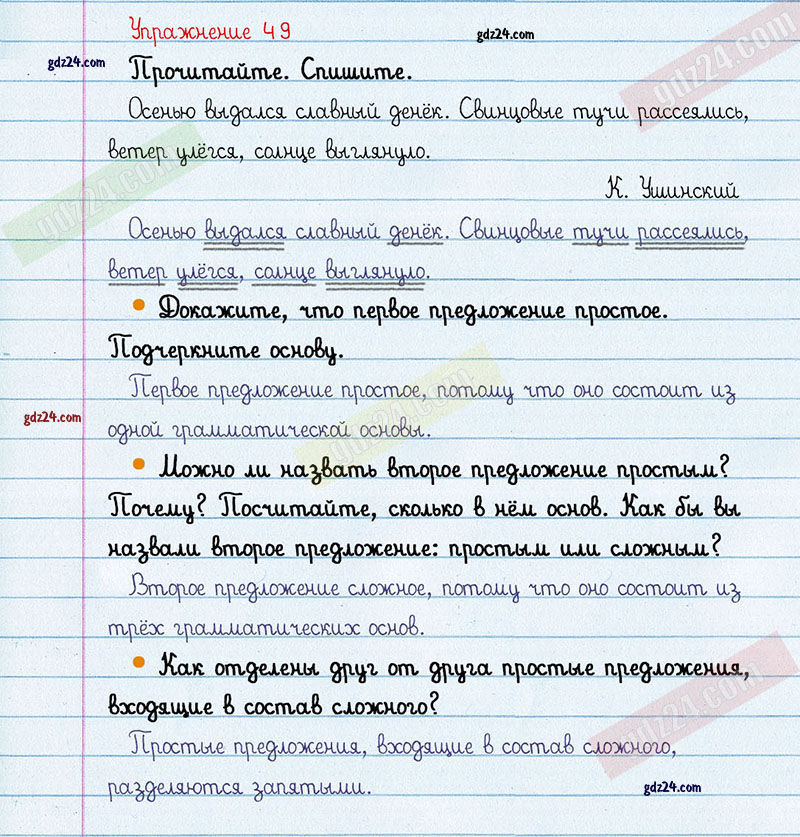 Упражнение 49
gdz24.com
gdz24.com
gdz24.com
Прочитайте. Спишите.
Осенью выдался славный денёк. Свинцовые тучи рассеялись,
ветер улёгся, солнце выглянуло.
gdz24.com
К. Ушинский
Осенью выдался славный денёк. Свинцовые тучи рассеялись,
ветер улёгся, солнце выглянуло.
• Докажите, что первое предложение простое.
Подчеркните основу.
Первое предложение простое, потому что оно состоит из
gdz24.com
gdz24.com
одной грамматической основы.
• Можно ли назвать второе предложение простым?
Почему? Посчитайте, сколько в нём основ. Как бы вы
назвали второе предложение: простым или сложным?
Второе предложение сложное, потому что оно состоит из
трёх грамматических основ.
• Как отделены друг от друга простые предложения,
входящие в состав сложного?
gdz24.com
Простые предложения, входящие в состав сложного,
разделяются запятыми.
gdz24.com